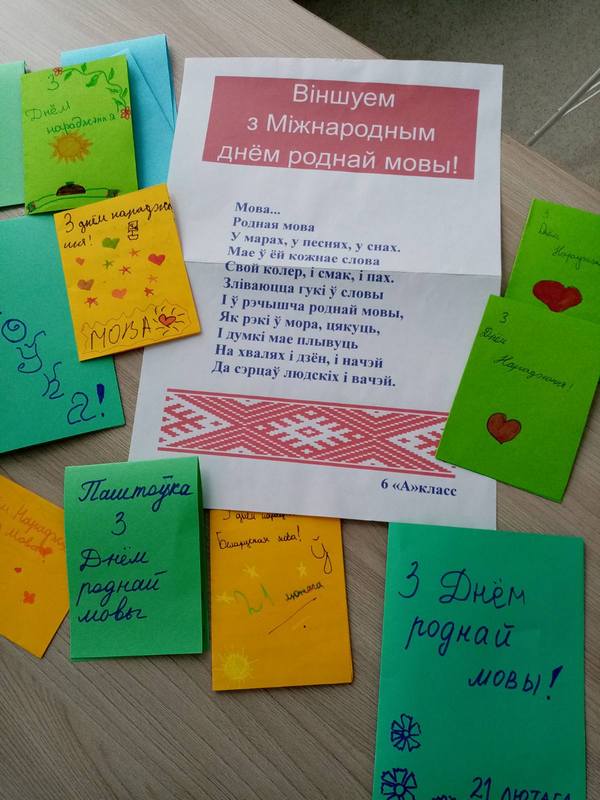 Віншуем
з Міжнародным
днём роднай мовы!
Мова...
Родная мова
У марах, у песнях, у снах.
Мае ў ёй кожнае слова
Свой колер, і смак, і пах.
Зліваюцца гукі ў словы
І ў рэчышча роднай мовы,
Як рэкі ў мора, цякуць,
І думкі мае плывуць
На хвалях і дзён, і начэй
Да сэрцаў людскіх і вачэй.
6 «А»класс
З
Днём
нараджэння
З днём нараджэ
ння!
МОВА
З
Днём
З
Днём
Нараджэння!
Паштоўка
З
Днём
роднай
мовы
З днём
Беларуская мова!
Ў
21 лютага
З Днём
роднай
мовы!
21 лютага